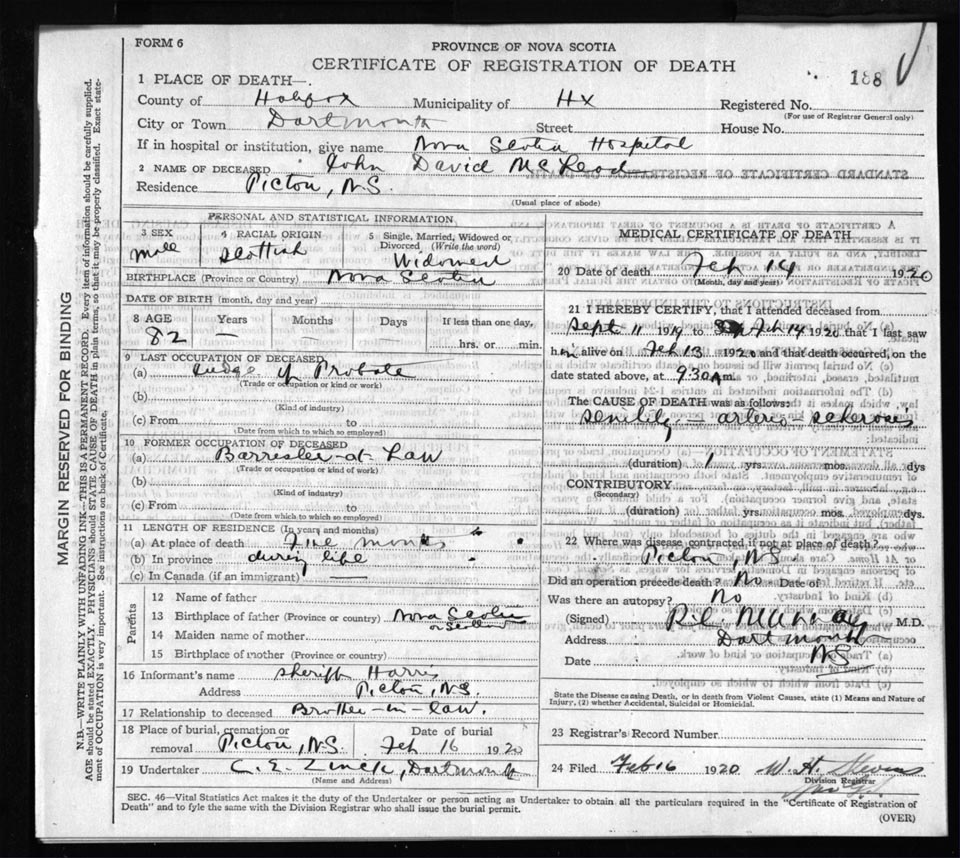 FORM 6
PROVINCE OF NOVA SCOTIA
CERTIFICATE OF REGISTRATION OF DEATH
188
1 PLACE OF DEATH—
County of Halifax Municipality of Hx Registered No.
(For use of Registrar General only)
City or Town Dartmouth Street House No.
If in hospital or institution, give name Nova Scotia Hospital
2 NAME OF DECEASED John David McLeod
Residence Picton, N.S.
(Usual place of abode)
PERSONAL AND STATISTICAL INFORMATION
3 SEX 4 RACIAL ORIGIN 5 Single, Married, Widowed or Divorced (Write the word)
Male Scottish Widowed
BIRTHPLACE (Province or Country) Nova Scotia
DATE OF BIRTH (month, day and year)
8 AGE Years Months Days If less than one day,
82 — hrs. or min.
9 LAST OCCUPATION OF DECEASED
(a) Judge of Probate
(Trade or occupation or kind of work)
(b)
(Kind of industry)
(c) From to
(Date from which to which so employed)
10 FORMER OCCUPATION OF DECEASED
(a) Barrester-at-Law
(Trade or occupation or kind of work)
(b)
(Kind of industry)
(c) From to
(Date from which to which so employed)
11 LENGTH OF RESIDENCE (In years and months)
(a) At place of death Five months
(b) In province during life
(c) In Canada (if an immigrant) —
Parents
12 Name of father
13 Birthplace of father (Province or country) Nova Scotia
or Scotland
14 Maiden name of mother
15 Birthplace of mother (Province or country)
16 Informant's name Sheriff Harris
Address Picton, N.S.
17 Relationship to deceased Brother-in-law.
18 Place of burial, cremation or removal Picton, N.S. Date of burial Feb 16 1920
19 Undertaker C. E. Zinck, Dartmouth
(Name and Address)
MEDICAL CERTIFICATE OF DEATH
20 Date of death Feb 14 1920
(Month, day and year)
21 I HEREBY CERTIFY, that I attended deceased from
Sept 11 1919 to Feb 14 1920 that I last saw
him alive on Feb 13 1920 and that death occurred, on the
date stated above, at 9.30 A m.
The CAUSE OF DEATH was as follows:
senility arterio sclerosis
(duration) 1 yrs. mos. dys
CONTRIBUTORY
(Secondary)
(duration) yrs. mos. dys
22 Where was disease contracted if not at place of death?
Picton, N.S
Did an operation precede death? No Date of
Was there an autopsy? No
(Signed) Murray M.D.
Address Dartmouth
Date N.S
State the Disease causing Death, or in death from Violent Causes, state (1) Means and Nature of
Injury, (2) whether Accidental, Suicidal or Homicidal.
23 Registrar's Record Number
24 Filed Feb 16 1920 W. H. Stevens
Division Registrar
SEC. 46—Vital Statistics Act makes it the duty of the Undertaker or person acting as Undertaker to obtain all the particulars required in the "Certificate of Registration of
Death" and to fyle the same with the Division Registrar who shall issue the burial permit.
(OVER)
MARGIN RESERVED FOR BINDING
N.B.—WRITE PLAINLY WITH UNFADING INK—THIS IS A PERMANENT RECORD. Every item of information should be carefully supplied.
AGE should be stated EXACTLY. PHYSICIANS should STATE CAUSE OF DEATH in plain terms, so that it may be properly classified. Exact state-
ment of OCCUPATION is very important. See instructions on back of Certificate.